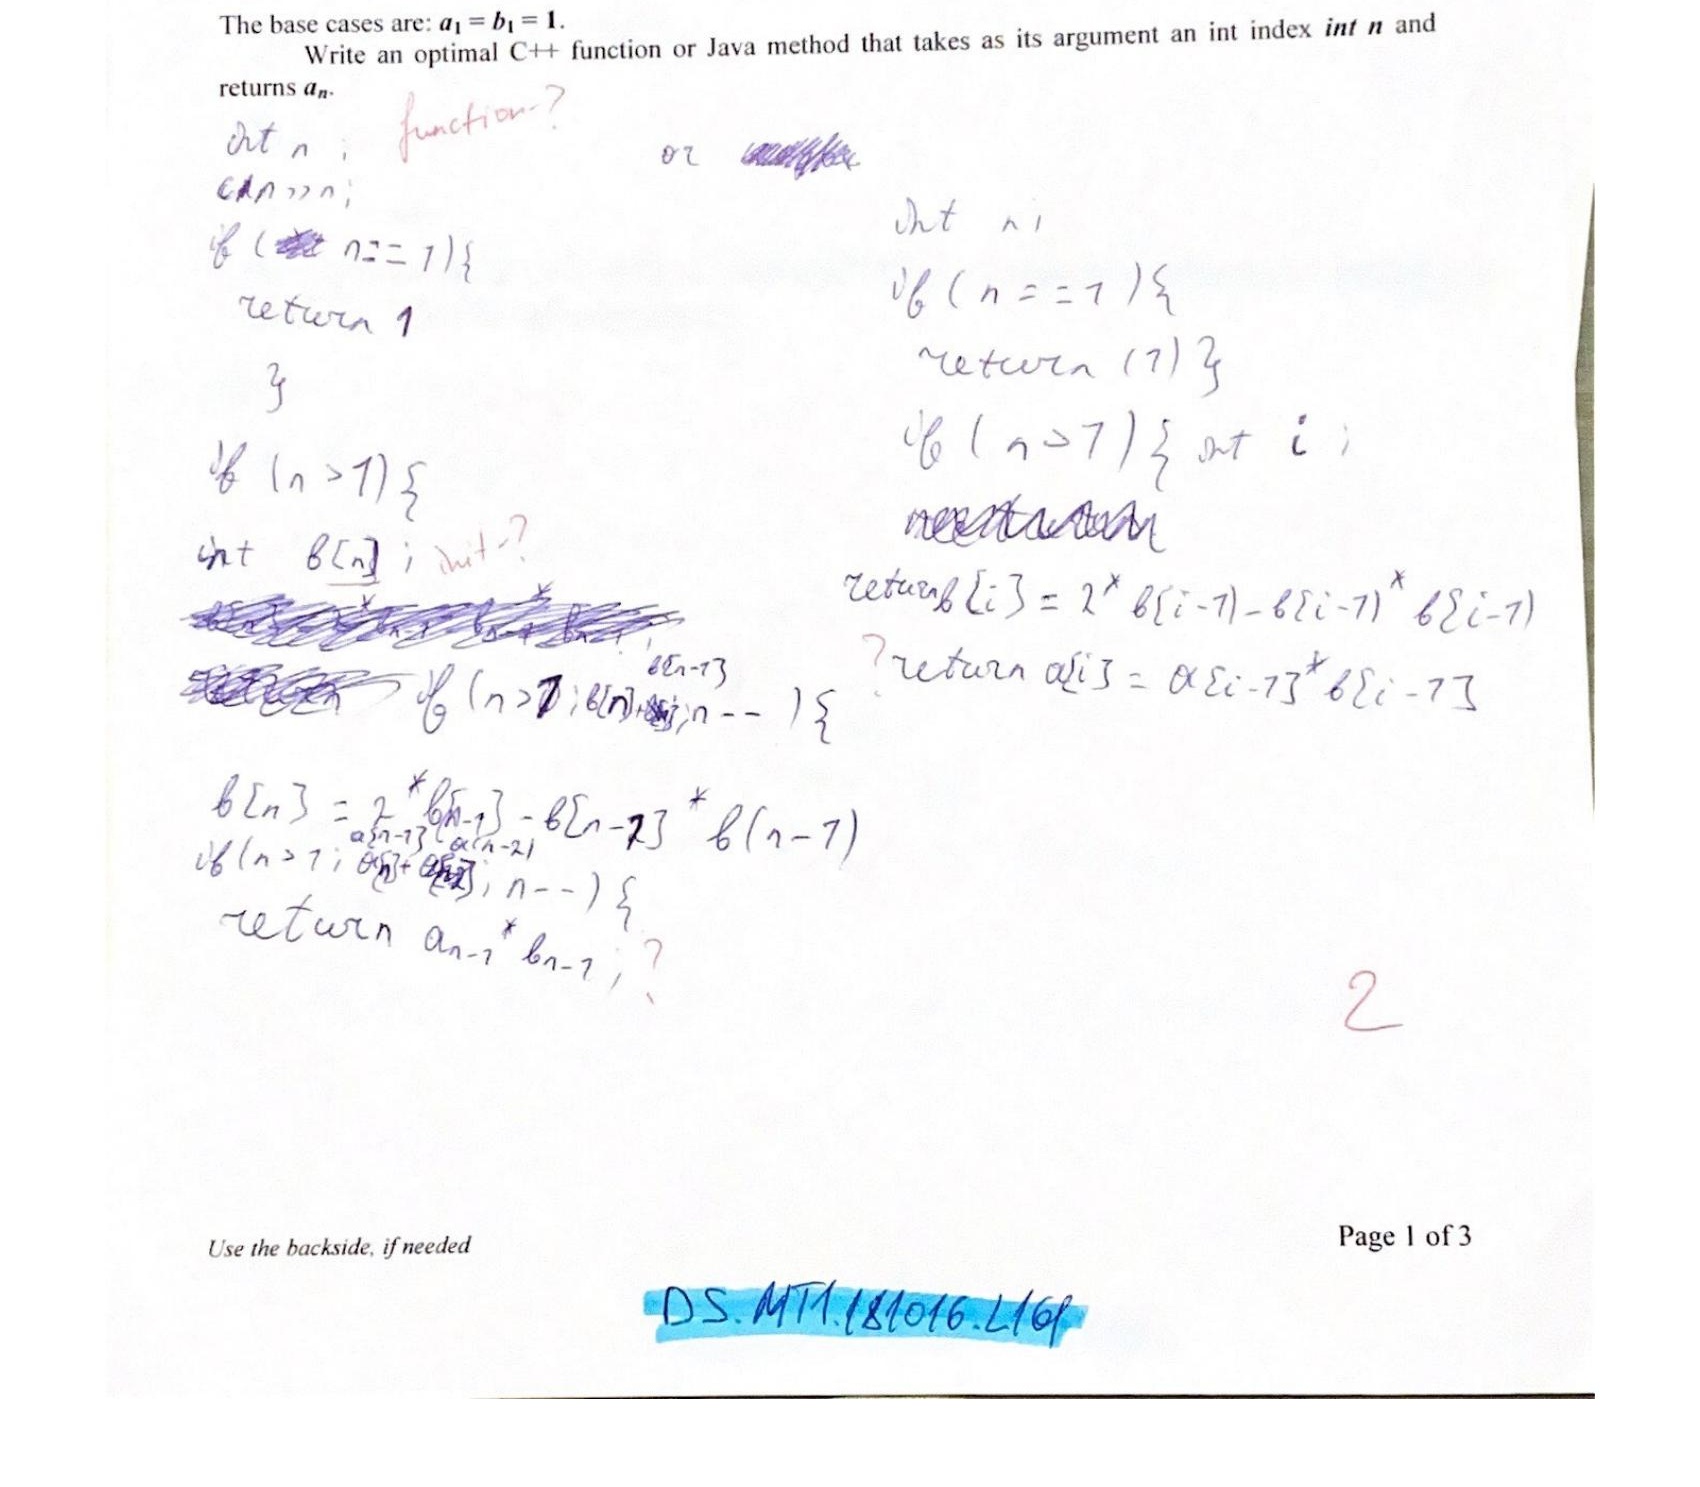 The base cases are: a₁ = b₁ = 1.
Write an optimal C++ function or Java method that takes as its argument an int index int n and
returns aₙ.
function-?
int n ;
cin >> n ;
if ( n == 1 ) {
return 1
}
if ( n > 1 ) {
int b[n] ; init-?
b[n-1]
if ( n > 1 ; b[n]+ ; n-- ) {
b[n] = 2 * b[n-1] - b[n-2] * b(n-1)
a[n-1] a(n-2)
if ( n > 1 ; ; n-- ) {
return aₙ₋₁ * bₙ₋₁ ; ?
or
int n ;
if ( n == 1 ) {
return (1) }
if ( n > 1 ) { int i ;
return b[i] = 2 * b[i-1) - b[i-1) * b[i-1)
? return a[i] = a[i-1] * b[i-1]
2
Use the backside, if needed
Page 1 of 3
DS.MT1.181016.L169